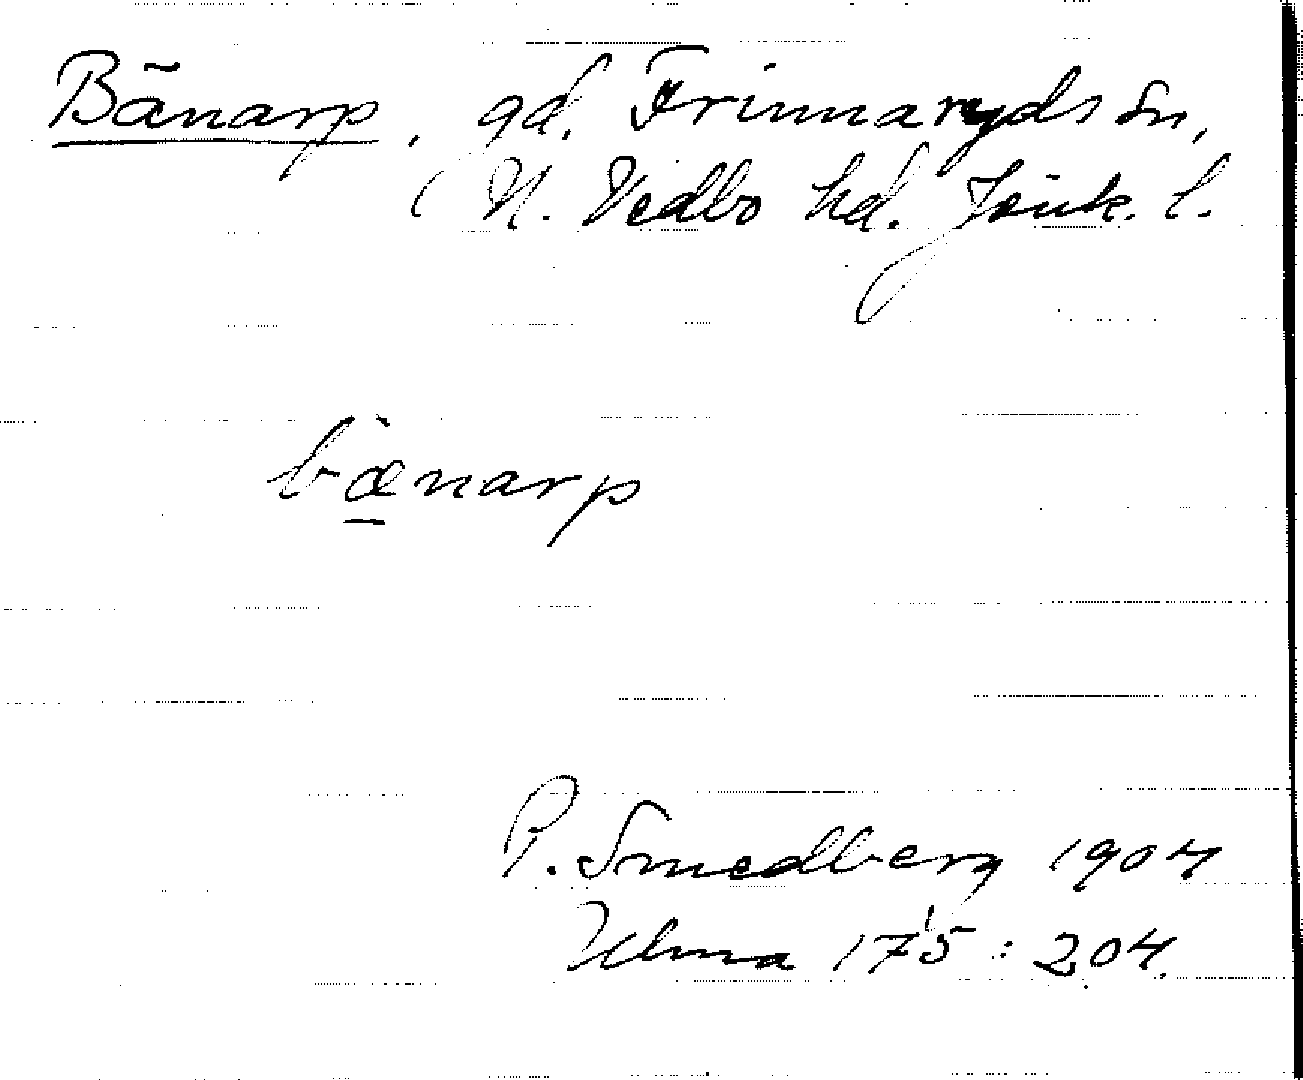 Bänarp, gd. Frinnaryds sn,
( N. Vedbo hd. Jönk. l.
bæ̠̀narp
P. Smedberg 1904
Ulma 175 : 204.